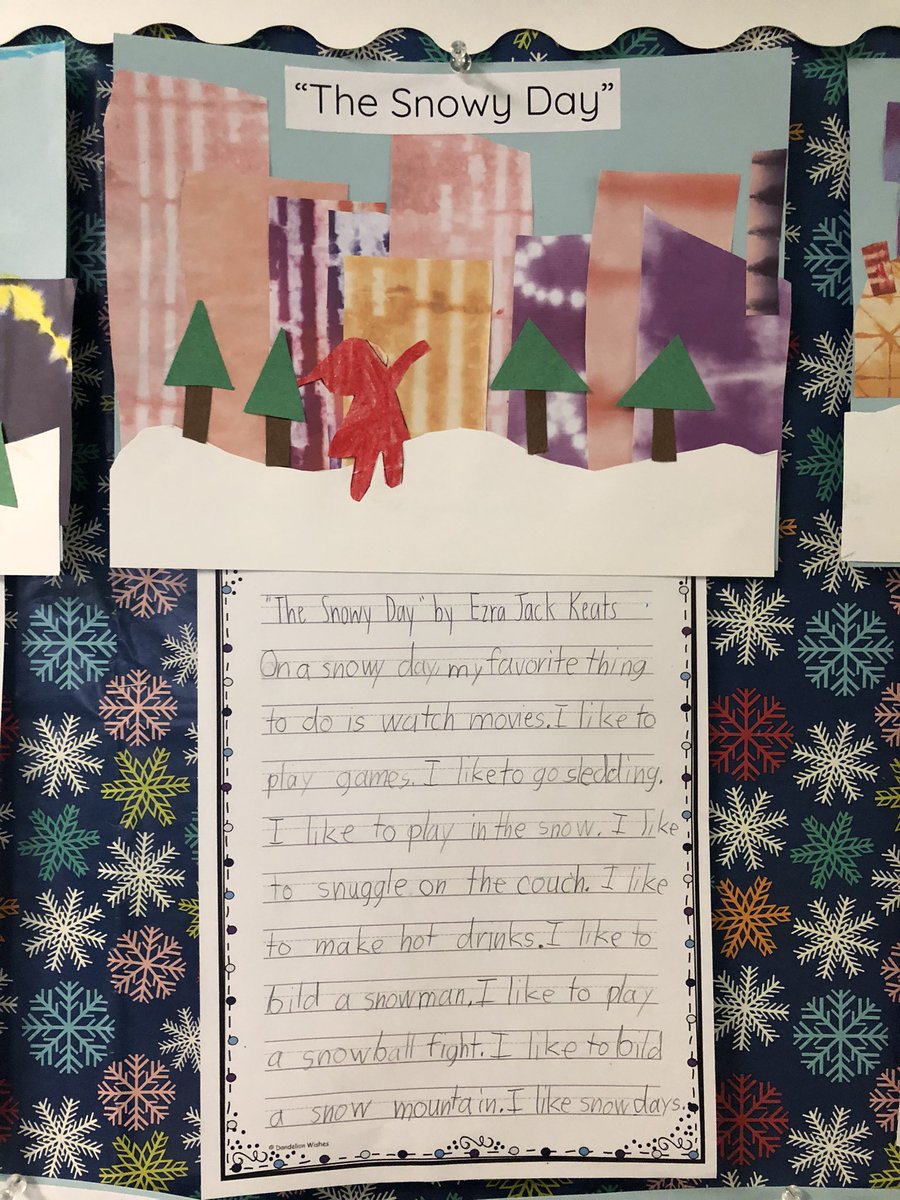 “The Snowy Day”
"The Snowy Day" by Ezra Jack Keats
On a snowy day, my favorite thing
to do is watch movies. I like to
play games. I like to go sledding.
I like to play in the snow. I like
to snuggle on the couch. I like
to make hot drinks. I like to
bild a snowman. I like to play
a snowball fight. I like to bild
a snow mountain. I like snow days.
© Dandelion Wishes